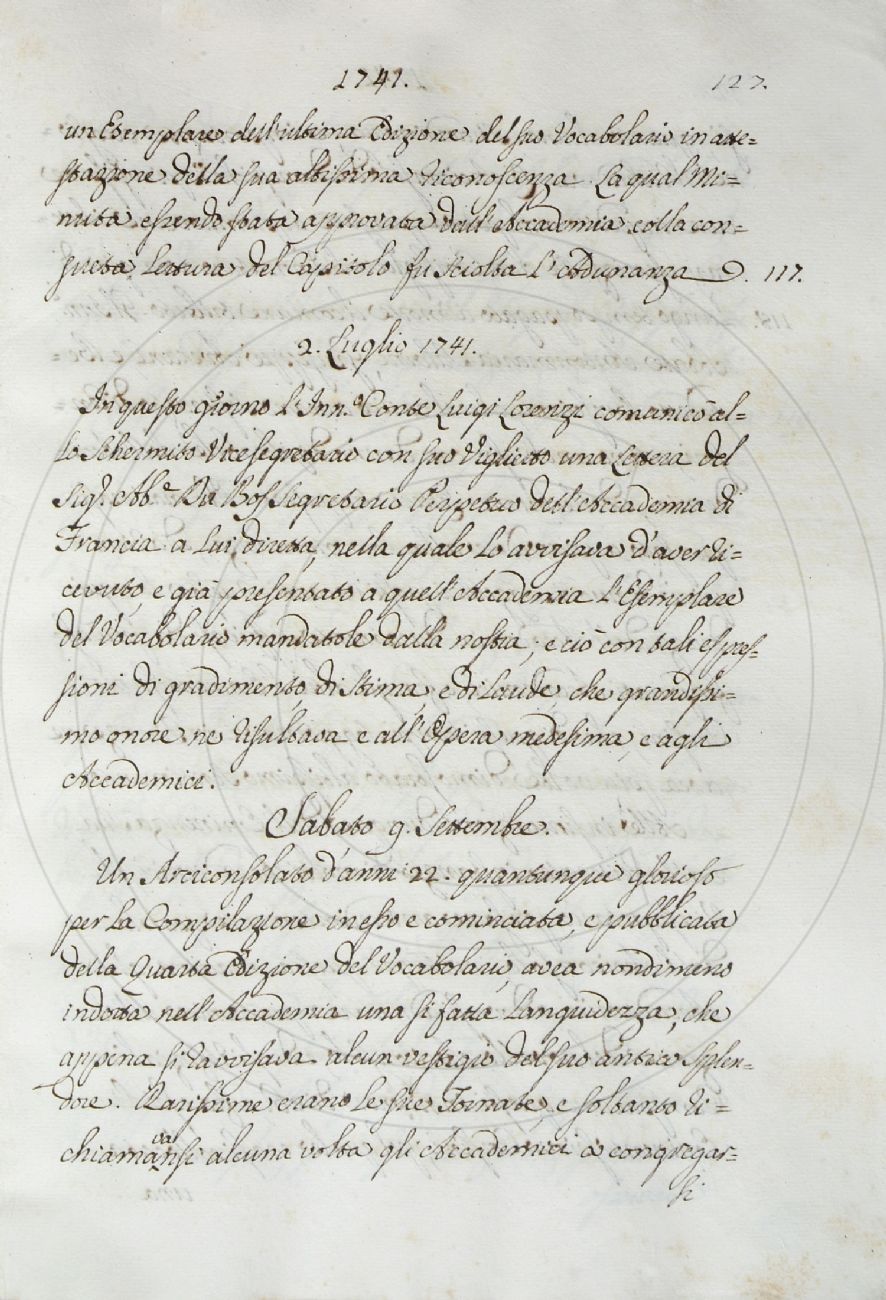 1741. 127.
un Esemplare dell'ultima Edizione del suo Vocabolario in atte=
stazione della sua altissima riconoscenza. La qual Mi=
nuta essendo stata approvata dall'Accademia, colla con=
sueta Lettura del Capitolo fu sciolta l'Adunanza. 117.
2. Luglio 1741.
In questo giorno l'Inn.º Conte Luigi Lorenzi comunicò al=
lo Schermito Vicesegretario con suo Viglietto una Lettera del
Sig.r Ab.e Du Bos Segretario Perpetuo dell'Accademia di
Francia a lui diretta, nella quale lo avvisava d'aver ri=
cevuto, e già presentato a quell'Accademia l'Esemplare
del Vocabolario mandatole dalla nostra; e ciò con tali espres=
sioni di gradimento, di stima, e di laude, che grandissi=
mo onore ne risultava e all'Opera medesima, e agli
Accademici.
Sabato 9. Settembre.
Un Arciconsolato d'anni 22. quantunque glorioso
per la Compilazione in esso e cominciata, e pubblicata
della Quarta Edizione del Vocabolario, avea nondimeno
indotta nell'Accademia una sì fatta languidezza, che
appena si ravvisava alcun vestigio del suo antico splen=
dore. Rarissime erano le sue Tornate, e soltanto ri=
chiamavansi alcuna volta gli Accademici a congregar=
si